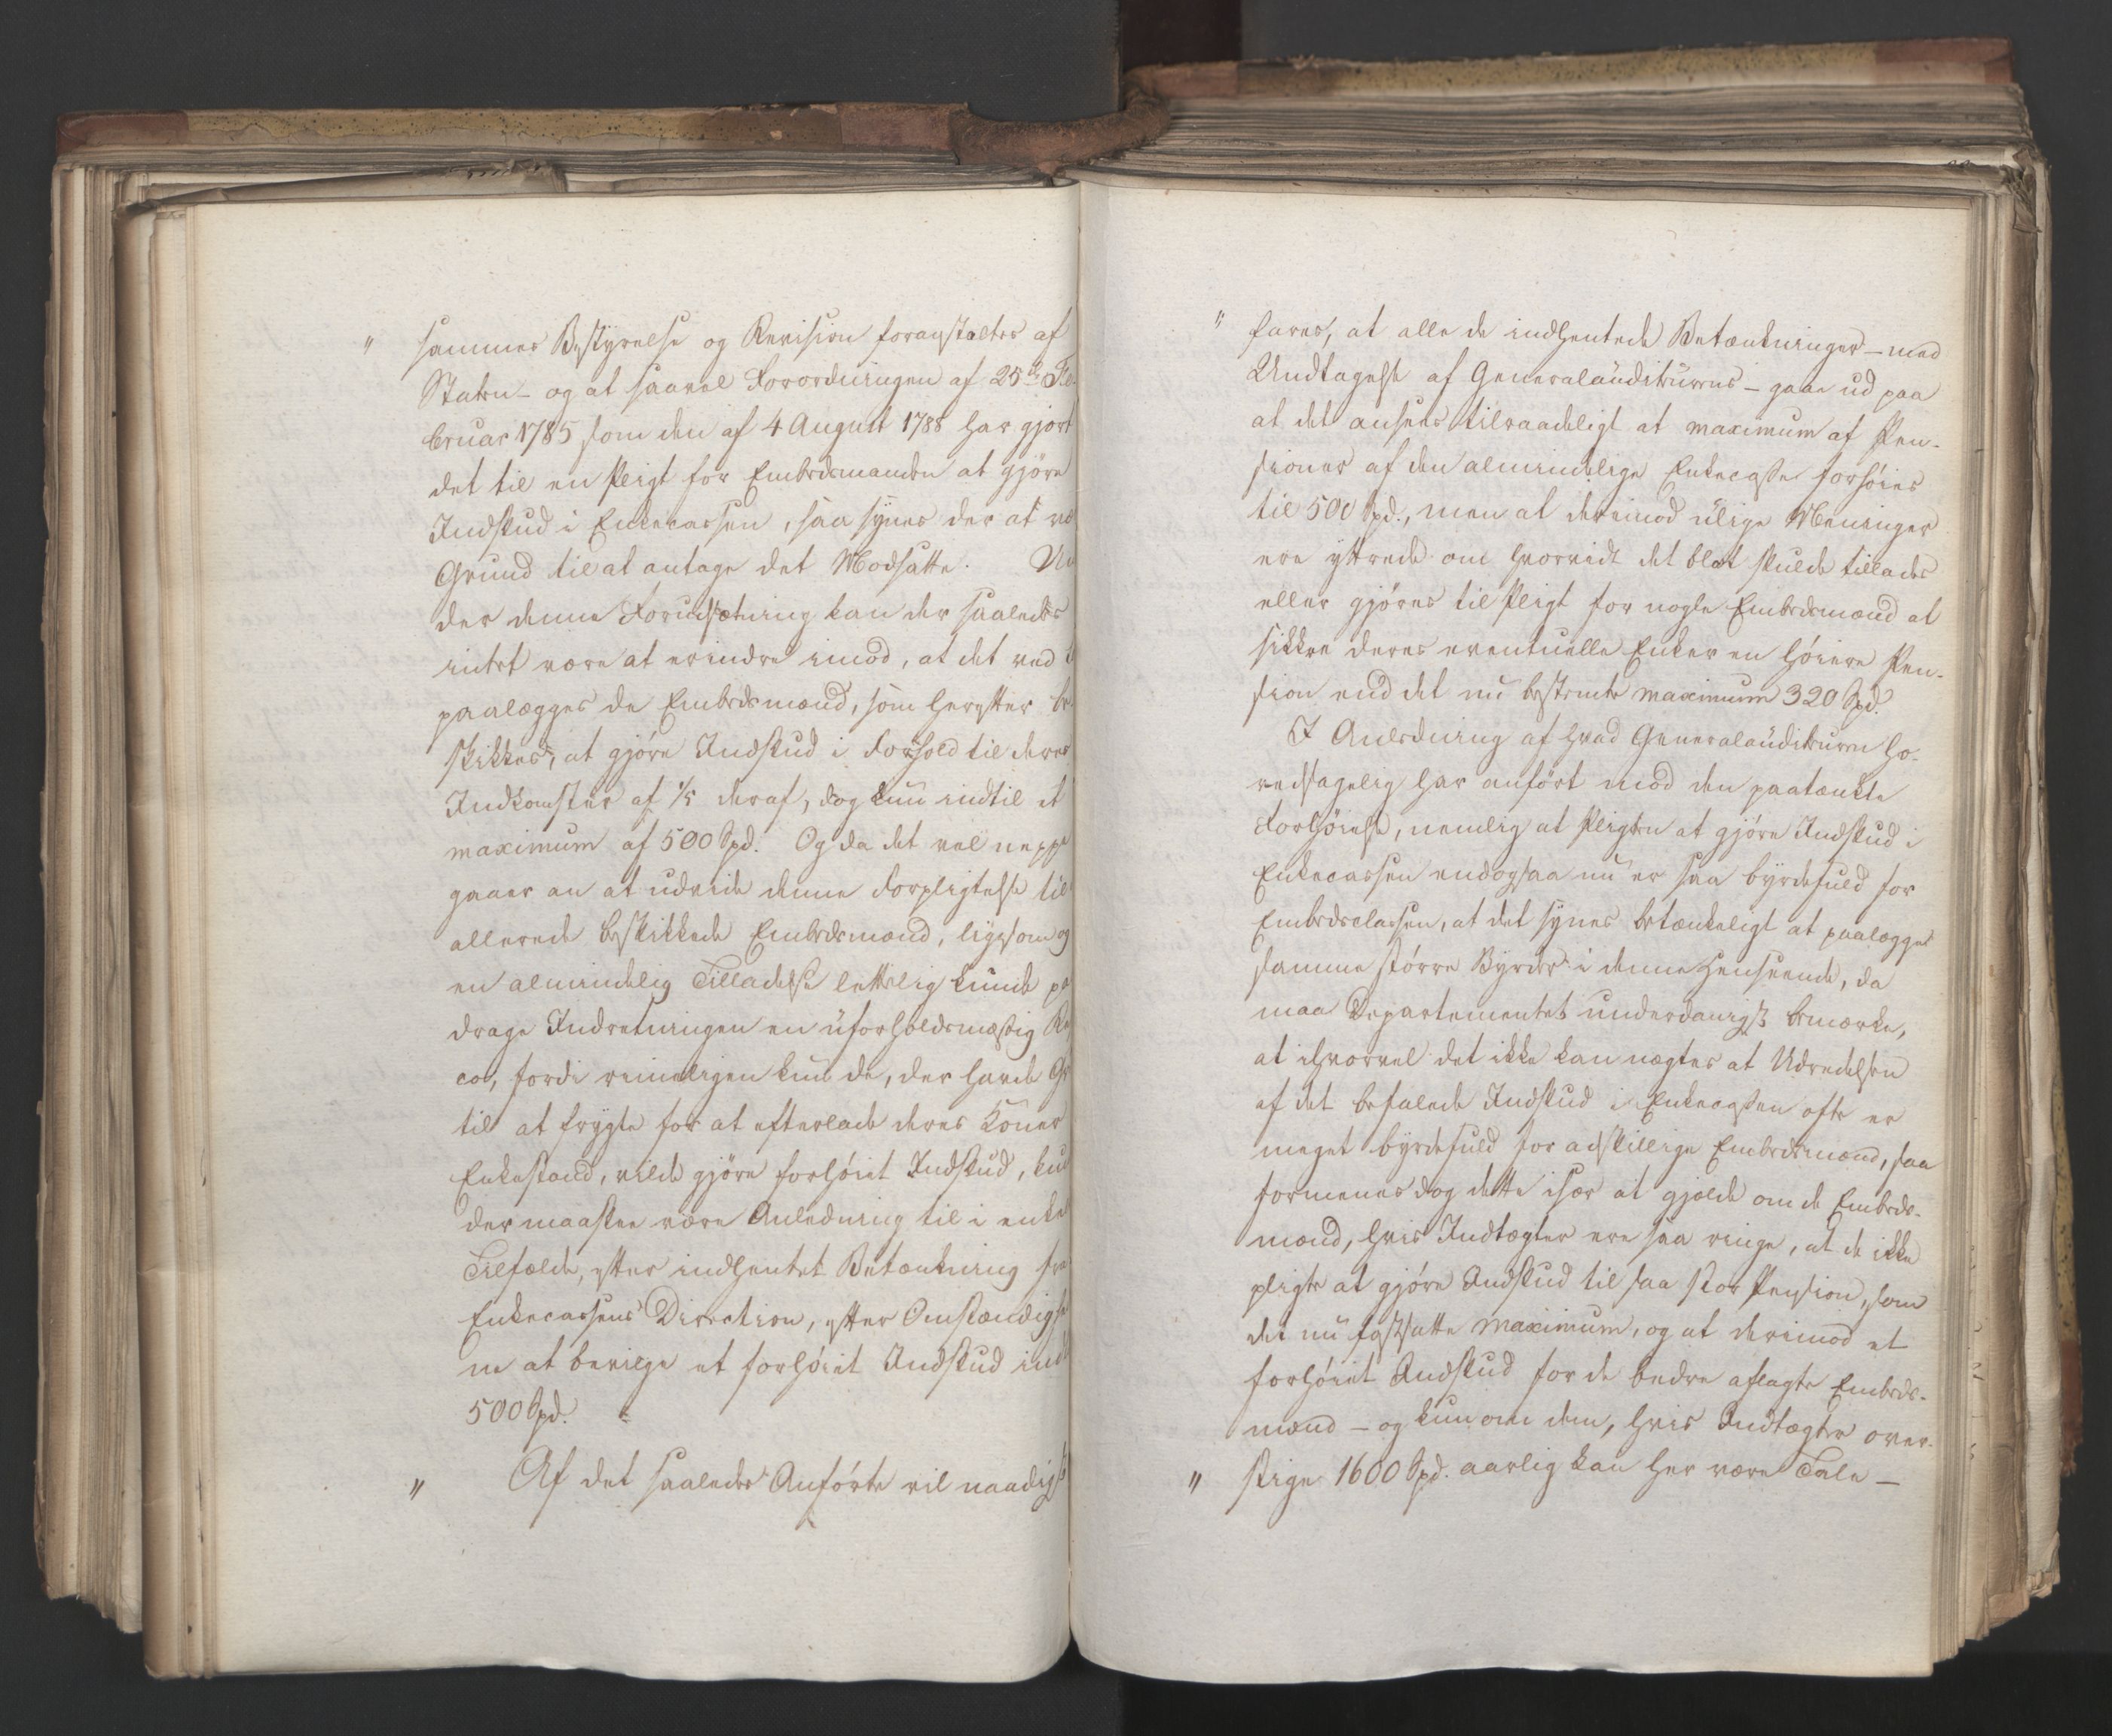 " sammes Bestyrelse og Revision foranstaltes af
Staten – og at saavel Forordningen af 25de Fe-
bruar 1785 som den af 4 August 1788 har gjort
det til en Pligt for Embedsmanden at gjøre
Indskud i Enkecassen, saa synes der at væ
Grund til at antage det Modsatte. Un
der denne Forudsætning kan der saaledes
intet være at erindre imod, at det ved
paalægges de Embedsmænd, som herefter be
skikkes, at gjøre Indskud i Forhold til deres
Indkomster af 1/5 deraf, dog kun indtil et
maximum af 500 Spd. Og da det vel neppe
gaaer an at udvide denne Forpligtelse til
allerede beskikkede Embedsmænd, ligesom og
en almindelig Tilladelse lettelig kunde paa
drage Indretningen en uforholdsmæssig Ri
co, fordi rimeligen kun de, der havde Gr
til at frygte for at efterlade deres Koner
Enkestand, vilde gjøre forhøiet Indskud, kun
der maaskee være Anledning til i enkel
Tilfælde, efter indhentet Betænkning fra
Enkecassens Direction, efter Omstændighe
ne at bevilge et forhøiet Indskud indt
500 Spd.
" Af det saaledes Anførte vil naadigst
" fares, at alle de indhentede Betænkninger – med
Undtagelse af Generalauditeurens – gaae ud paa
at det ansees tilraadeligt at maximum af Pen-
sioner af den almindelige Enkecasse forhøies
til 500 Spd., men at derimod ulige Meninger
ere yttrede om hvorvidt det blot skulde tillades
eller gjøres til Pligt for nogle Embedsmænd at
sikkre deres eventuelle Enker en høiere Pen-
sion end det nu bestemte maximum 320 Spd.
I Anledning af hvad Generalauditeuren ho-
vedsagelig har anført mod den paatænkte
Forhøielse, nemlig at Pligten at gjøre Indskud i
Enkecassen endogsaa nu er saa byrdefuld for
Embedsclassen, at det synes betænkeligt at paalægge
samme større Byrder i denne Henseende, da
maa Departementet underdanigst bemærke,
at ihvorvel det ikke kan nægtes at Udredelsen
af det befalede Indskud i Enkecassen ofte er
meget byrdefuld for adskillige Embedsmænd, saa
formenes dog dette især at gjelde om de Embeds-
mænd, hvis Indtægter ere saa ringe, at de ikke
pligte at gjøre Indskud til saa stor Pension, som
det nu fastsatte maximum, og at derimod et
forhøiet Indskud for de bedre aflagte Embeds-
mænd – og kun om dem, hvis Indtægter over-
" stige 1600 Spd. aarlig kan her være Tale –